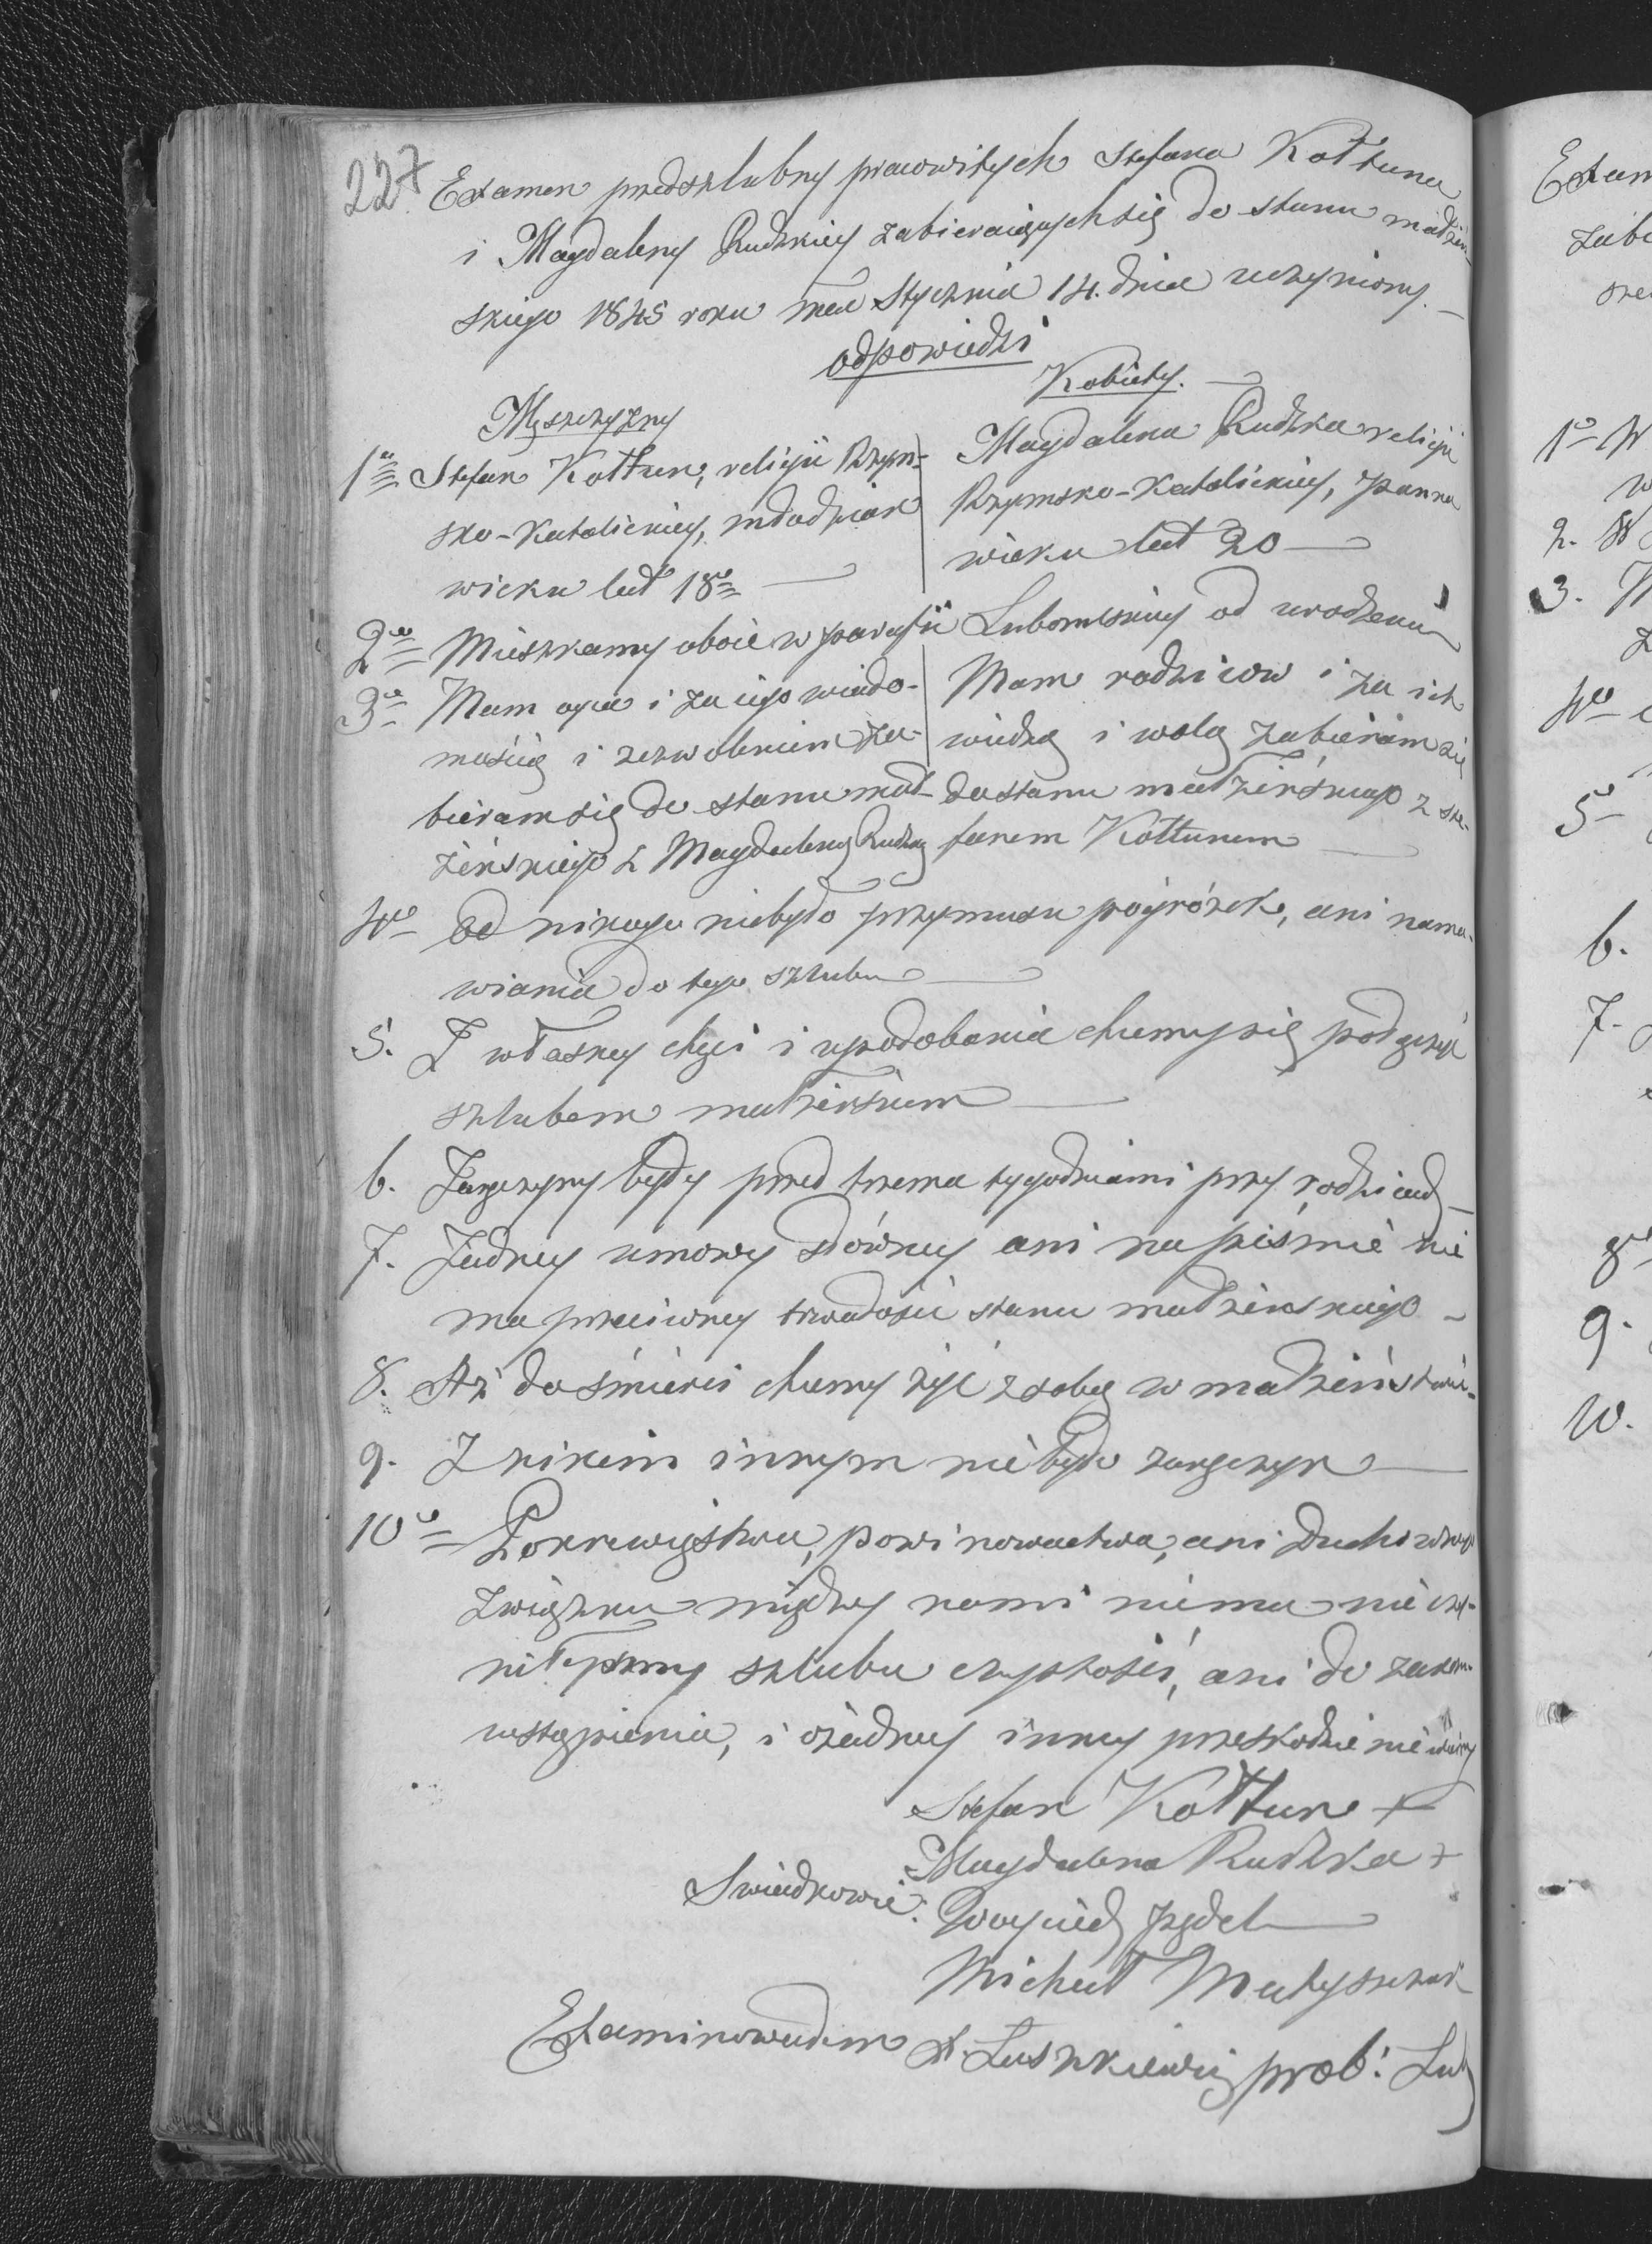 227. Examen przedszlubny pracowitych Stefana Kołtuna
i Magdaleny Rudzkiey zabieraiących się do stanu małżeń-
skiego 1845 roku mca Stycznia 14. dnia uczyniony. —
odpowiedzi
Męszczyzny
Kobiéty. —
1o Stefan Kołtun, religii Rzym-
sko-Katolickiey, młodzian
wieku lat 18e —
Magdalena Rudzka religii
Rzymsko-Katolickiey, Panna
wieku lat 20 —
2o Mieszkamy oboie w parafii Lubomlskiey od urodzenia
3o Mam oyca i za iego wiado-
mością i zezwoleniem za-
bieram się do stanu mał-
żeńskiego z Magdaleną Rudzką
Mam rodziców i za ich
wiedzą i wolą zabieram się
do stanu małżeńskiego z Ste-
fanem Kołtunem —
4o Od nikogo niebyło przymusu pogróżek, ani nama-
wiania do tego szlubu —
5. Z własney chęci i upodobania chcemy się połączyć
szlubem małżeńskim —
6. Zaręczyny były przed trzema tygodniami przy rodzicach —
7. Żadney umowy słówney ani na piśmie nie
ma przeciwney trwałości stanu małżeńskiego —
8. Aż do śmierci chcemy żyć z sobą w małżeństwie -
9. Z nikim innym nie było zaręczyn —
10o Pokrewięstwa, powinowactwa, ani Duchownego
związku między nami niema nie czy-
niliśmy szlubu czystości, ani do zakonu
wstąpienia, i żadney inney przeszkodzie nie
Stefan Kołtun +
Magdalena Rudzka +
Swiadkowie:
Woyciech
Michał
Examinowałem X. Luszkiewicz prob: Lub